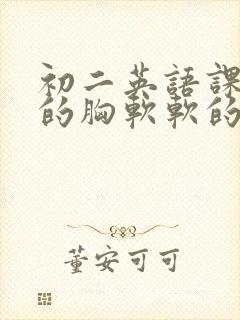 初二英語課
的胸軟軟的
董安可可